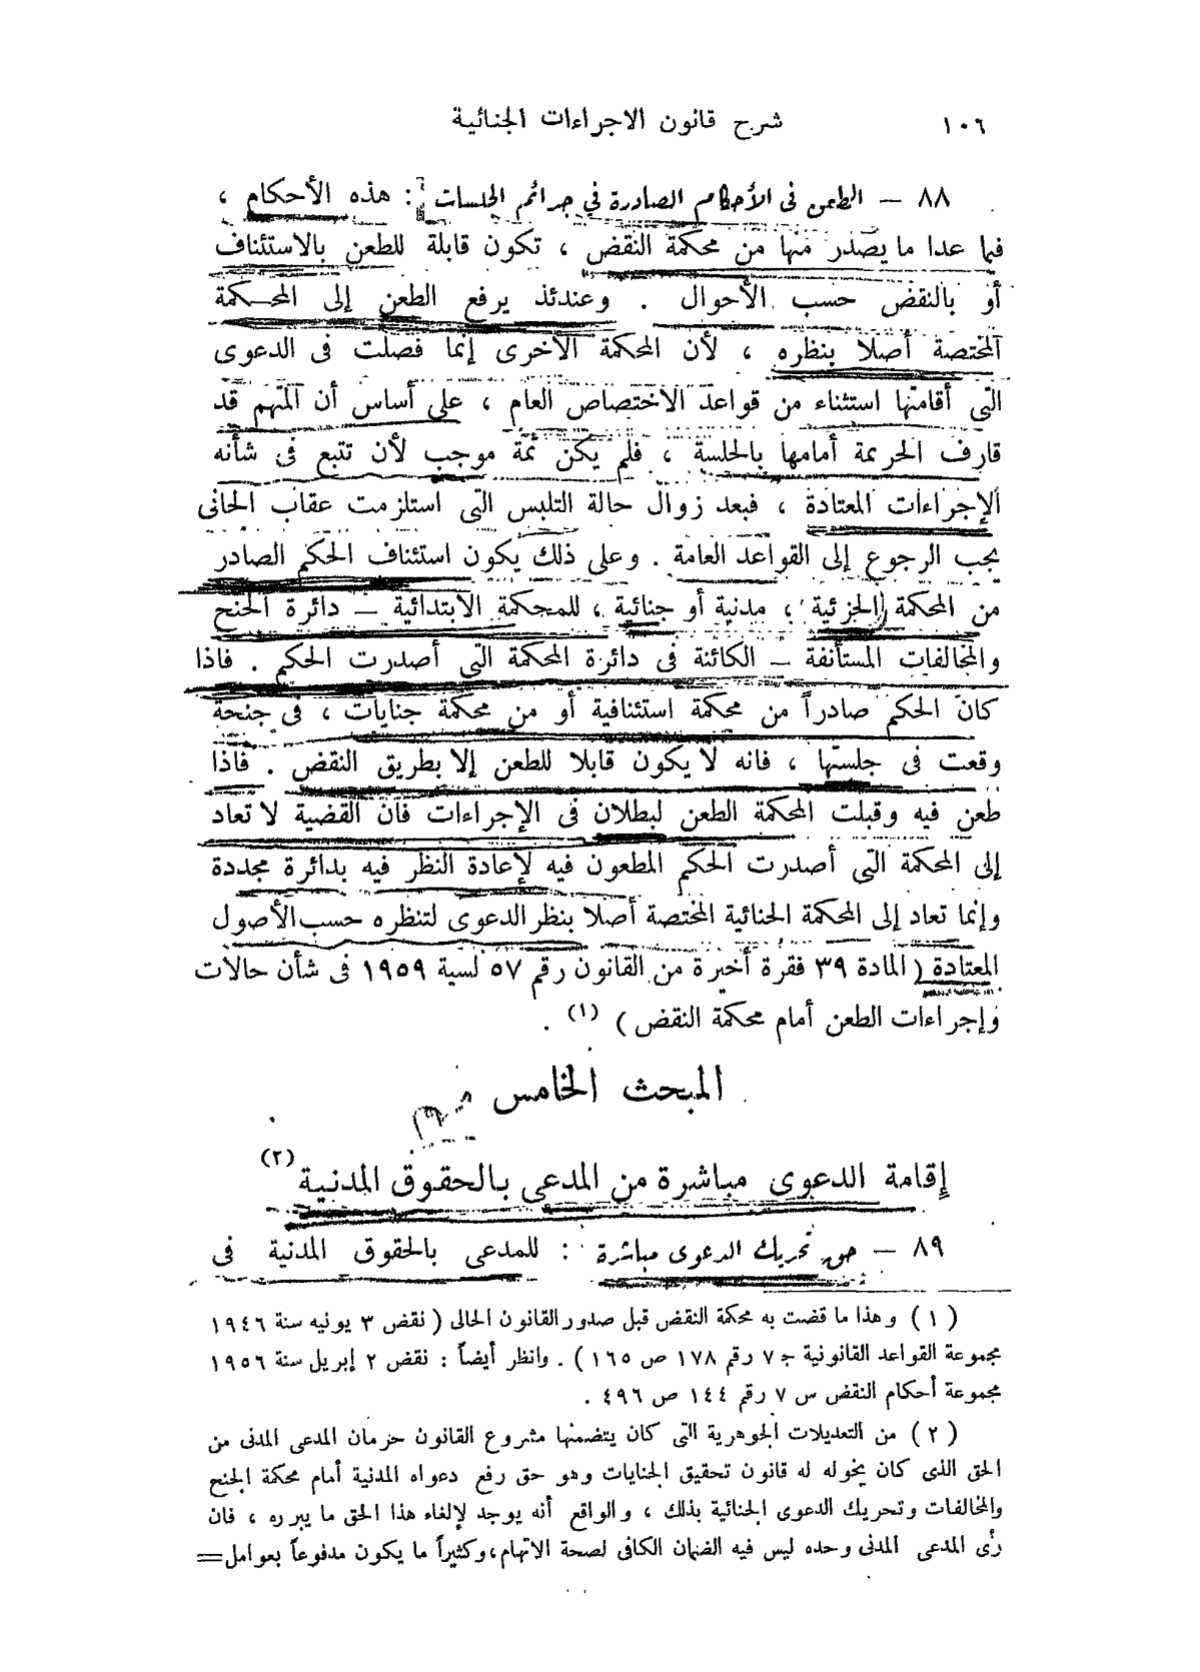 ١٠٦ شرح قانون الاجراءات الجنائية
٨٨ – الطعن فى الأحكام الصادرة فى جرائم الجلسات : هذه الأحكام ،
فيما عدا ما يصدر منها من محكمة النقض ، تكون قابلة للطعن بالاستئناف
أو بالنقض حسب الأحوال . وعندئذ يرفع الطعن إلى المحكمة
المختصة أصلا بنظره ، لأن المحكمة الأخرى إنما فصلت فى الدعوى
التى أقامتها استثناء من قواعد الاختصاص العام ، على أساس أن المتهم قد
قارف الجريمة أمامها بالجلسة ، فلم يكن ثمة موجب لأن تتبع فى شأنه
الإجراءات المعتادة ، فبعد زوال حالة التلبس التى استلزمت عقاب الجانى
يجب الرجوع إلى القواعد العامة . وعلى ذلك يكون استئناف الحكم الصادر
من المحكمة الجزئية ، مدنية أو جنائية ، للمحكمة الابتدائية – دائرة الجنح
والمخالفات المستأنفة – الكائنة فى دائرة المحكمة التى أصدرت الحكم . فاذا
كان الحكم صادراً من محكمة استئنافية أو من محكمة جنايات ، فى جنحة
وقعت فى جلستها ، فانه لا يكون قابلا للطعن إلا بطريق النقض . فاذا
طعن فيه وقبلت المحكمة الطعن لبطلان فى الإجراءات فان القضية لا تعاد
إلى المحكمة التى أصدرت الحكم المطعون فيه لإعادة النظر فيه بدائرة مجددة
وإنما تعاد إلى المحكمة الجنائية المختصة أصلا بنظر الدعوى لتنظره حسب الأصول
المعتادة ( المادة ٣٩ فقرة أخيرة من القانون رقم ٥٧ لسنة ١٩٥٩ فى شأن حالات
وإجراءات الطعن أمام محكمة النقض ) (١) .
المبحث الخامس
إقامة الدعوى مباشرة من المدعى بالحقوق المدنية (٢)
٨٩ – حق تحريك الدعوى مباشرة : للمدعى بالحقوق المدنية فى
( ١ ) وهذا ما قضت به محكمة النقض قبل صدور القانون الحالى ( نقض ٣ يونيه سنة ١٩٤٦
مجموعة القواعد القانونية ج ٧ رقم ١٧٨ ص ١٦٥ ) . وانظر أيضاً : نقض ٢ إبريل سنة ١٩٥٦
مجموعة أحكام النقض س ٧ رقم ١٤٤ ص ٤٩٦ .
( ٢ ) من التعديلات الجوهرية التى كان يتضمنها مشروع القانون حرمان المدعى المدنى من
الحق الذى كان يخوله له قانون تحقيق الجنايات وهو حق رفع دعواه المدنية أمام محكمة الجنح
والمخالفات وتحريك الدعوى الجنائية بذلك ، والواقع أنه يوجد لإلغاء هذا الحق ما يبرره ، فان
رأى المدعى المدنى وحده ليس فيه الضمان الكافى لصحة الاتهام، وكثيراً ما يكون مدفوعاً بعوامل =